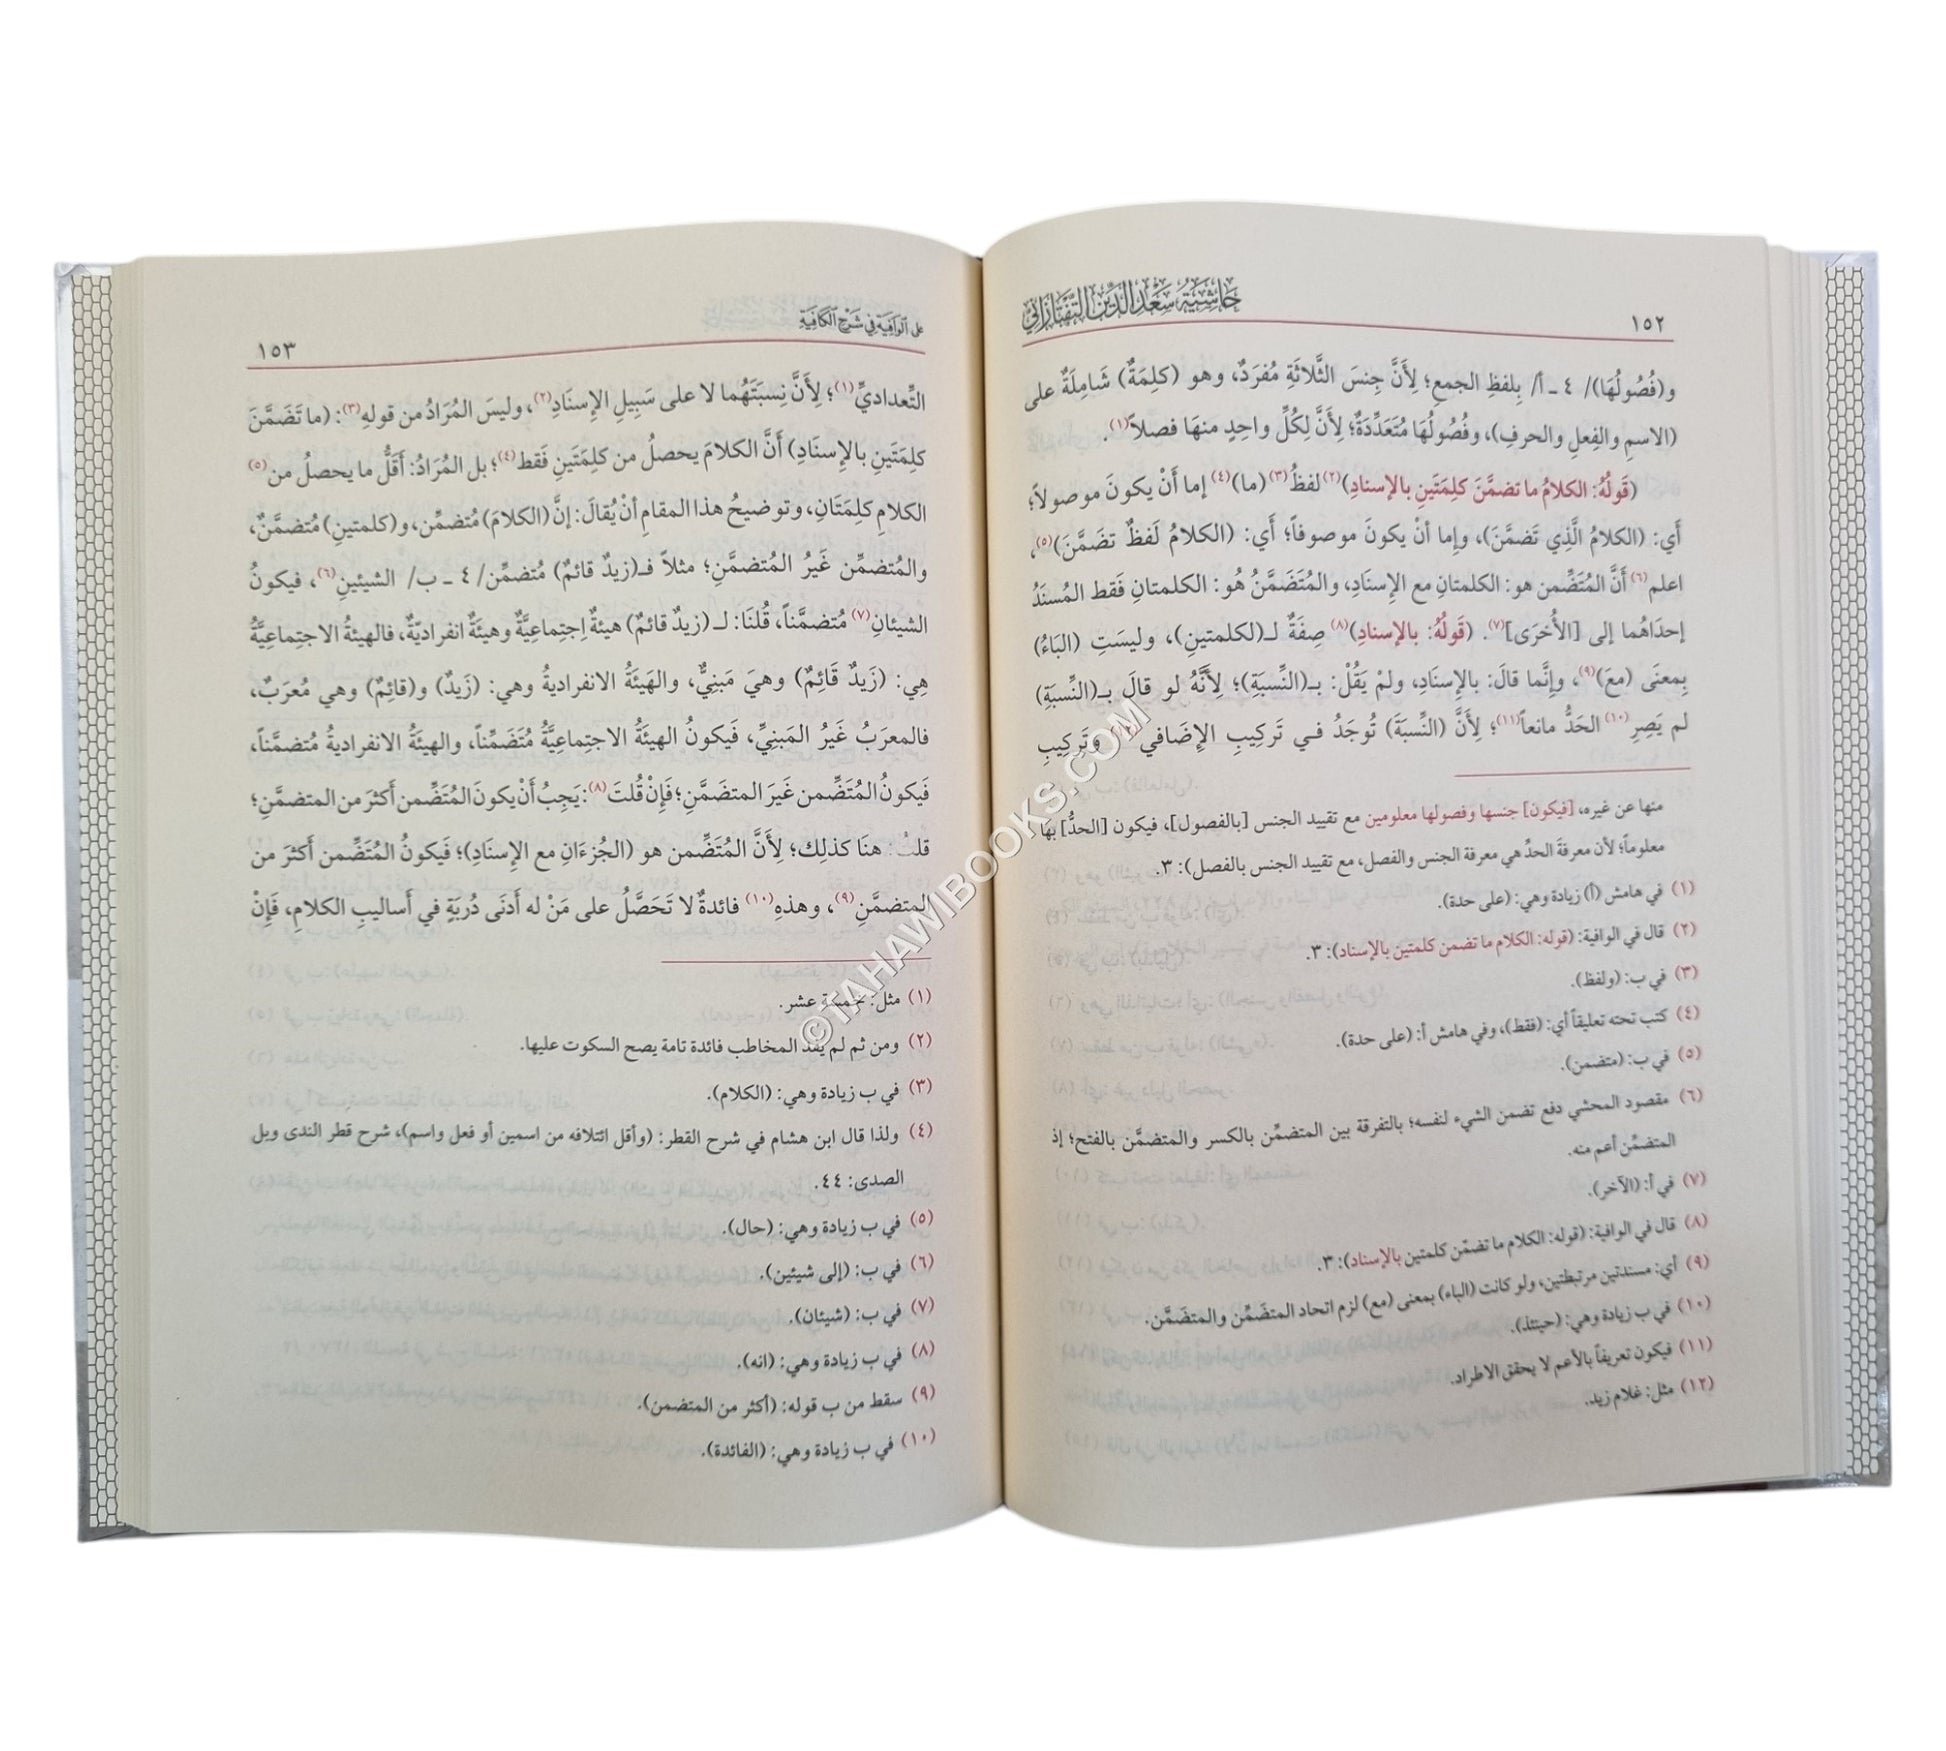 ١٥٢
حاشية سعد الدين التفتازاني
و(فُصُولُهَا)/ ٤ ـ أ/ بِلفظِ الجمعِ؛ لِأَنَّ جِنسَ الثَّلاثَةِ مُفرَدٌ، وهو (كلِمَةٌ) شَامِلَةٌ على
(الاسمِ والفِعلِ والحرفِ)، وفُصُولُهَا مُتَعَدِّدَةٌ؛ لِأَنَّ لِكُلِّ واحِدٍ منهَا فصلاً(١).
(قَولُهُ: الكلامُ ما تضمَّنَ كلِمَتَينِ بالإسنادِ)(٢) لفظُ(٣) (ما)(٤) إما أَنْ يكونَ موصولاً؛
أَي: (الكلامُ الَّذِي تَضَمَّنَ)، وإِما أنْ يكونَ موصوفاً؛ أَي: (الكلامُ لَفظٌ تضَمَّنَ)(٥)،
اعلم(٦) أَنَّ المُتَضِّمن هو: الكلمتانِ مع الإِسنَادِ، والمُتَضَمَّنُ هُو: الكلمتانِ فَقط المُسنَدُ
إحدَاهُما إلى [الأُخرَى](٧). (قَولُهُ: بالإسنادِ)(٨) صِفَةٌ لـ(لكلمتينِ)، وليسَتِ (البَاءُ)
بِمعنَى (معَ)(٩)، وإِنَّما قالَ: بالإِسنَادِ، ولمْ يَقُلْ: بـ(النِّسبَةِ)؛ لِأَنَّهُ لو قالَ بـ(النِّسبَةِ)
لم يَصِرِ(١٠) الحَدُّ مانعاً(١١)؛ لِأَنَّ (النِّسبَةَ) تُوجَدُ فـي تَركِيبِ الإِضَافي(١٢) وتَركِيبِ
منها عن غيره، [فيكون] جنسها وفصولها معلومين مع تقييد الجنس [بالفصول]، فيكون [الحدُّ] بها
معلوماً؛ لأن معرفةَ الحدِّ هي معرفة الجنس والفصل، مع تقييد الجنس بالفصل): ٣.
(١) في هامش (أ) زيادة وهي: (على حدة).
(٢) قال في الوافية: (قوله: الكلام ما تضمن كلمتين بالإسناد): ٣.
(٣) في ب: (ولفظ).
(٤) كتب تحته تعليقاً أي: (فقط)، وفي هامش أ: (على حدة).
(٥) في ب: (متضمن).
(٦) مقصود المحشي دفع تضمن الشيء لنفسه؛ بالتفرقة بين المتضمِّن بالكسر والمتضمَّن بالفتح؛ إذ
المتضمِّن أعم منه.
(٧) في أ: (الآخر).
(٨) قال في الوافية: (قوله: الكلام ما تضمّن كلمتين بالإسناد): ٣.
(٩) أي: مسندتين مرتبطتين، ولو كانت (الباء) بمعنى (مع) لزم اتحاد المتضَمِّن والمتضَمَّن.
(١٠) في ب زيادة وهي: (حينئذ).
(١١) فيكون تعريفاً بالأعم لا يحقق الاطراد.
(١٢) مثل: غلام زيد.
على الوافية في شرح الكافية
١٥٣
التِّعداديِّ(١)؛ لِأَنَّ نِسبَتَهُما لا على سَبِيلِ الإِسنَادِ(٢)، وليسَ المُرَادُ من قولهِ(٣): (ما تَضَمَّنَ
كلِمَتَينِ بالإِسنَادِ) أَنَّ الكلامَ يحصلُ من كلِمَتَينِ فَقط(٤)؛ بل المُرَادُ: أَقَلُّ ما يحصلُ من(٥)
الكلامِ كلمَتَانِ، وتوضيحُ هذا المقامِ أنْ يُقالَ: إنَّ (الكلامَ) مُتضمِّن، و(كلمتينِ) مُتضمَّنٌ،
والمُتضمِّن غَيرُ المُتضمَّنِ؛ مثلاً فـ(زيدٌ قائمٌ) مُتضمِّن/ ٤ ـ ب/ الشيئينِ(٦)، فيكونُ
الشيئانِ(٧) مُتضمَّناً، قُلنَا: لـ (زيدٌ قائمٌ) هيئةٌ اِجتِماعِيَّةٌ وهيئَةٌ انفراديّةٌ، فالهيئةُ الاجتِماعِيَّةُ
هِي: (زَيدٌ قَائِمٌ) وهيَ مَبنِيٌّ، والهَيئَةُ الانفراديةُ وهي: (زَيدٌ) و(قائِمٌ) وهي مُعرَبٌ،
فالمعرَبُ غَيرُ المَبنِيِّ، فَيكونُ الهيئةُ الاجتِماعِيَّةُ مُتَضَمِّناً، والهيئةُ الانفراديةُ مُتضمَّناً،
فَيكونُ المُتَضِّمن غَيرَ المتضَمَّنِ؛ فَإِنْ قُلتَ(٨): يَجِبُ أَنْ يكونَ المُتَضِّمن أَكثَرَ من المتضمَّنِ؛
قلتُ: هنَا كذلِك؛ لِأَنَّ المُتَضِّمن هو (الجُزءَانِ مع الإِسنَادِ)؛ فَيكونُ المُتَضِّمن أَكثَرَ من
المتضمَّنِ(٩)، وهذهِ(١٠) فائدةٌ لا تَحَصَّلُ على مَنْ له أَدنَى دُربَةٍ في أَساليبِ الكلامِ، فَإِنْ
(١) مثل: خمسة عشر.
(٢) ومن ثم لم يفد المخاطب فائدة تامة يصح السكوت عليها.
(٣) في ب زيادة وهي: (الكلام).
(٤) ولذا قال ابن هشام في شرح القطر: (وأقل ائتلافه من اسمين أو فعل واسم)، شرح قطر الندى وبل
الصدى: ٤٤.
(٥) في ب زيادة وهي: (حال).
(٦) في ب: (إلى شيئين).
(٧) في ب: (شيئان).
(٨) في ب زيادة وهي: (انه).
(٩) سقط من ب قوله: (أكثر من المتضمن).
(١٠) في ب زيادة وهي: (الفائدة).
©TAHAWIBOOKS.COM